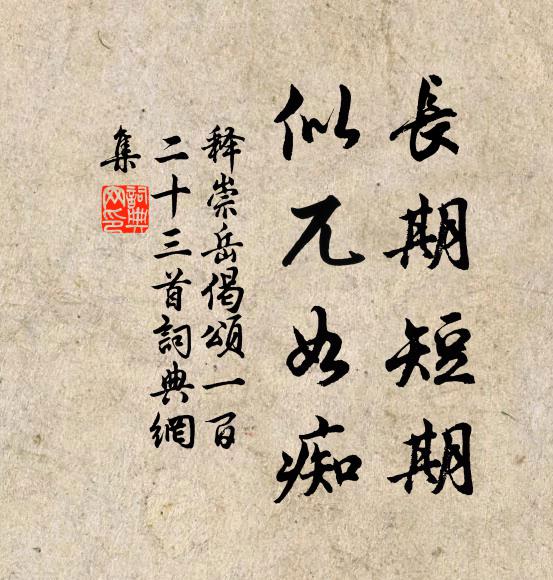 長期短期
似兀如痴
释崇岳偈頌一百
二十三首詞典網
集
詞典网印